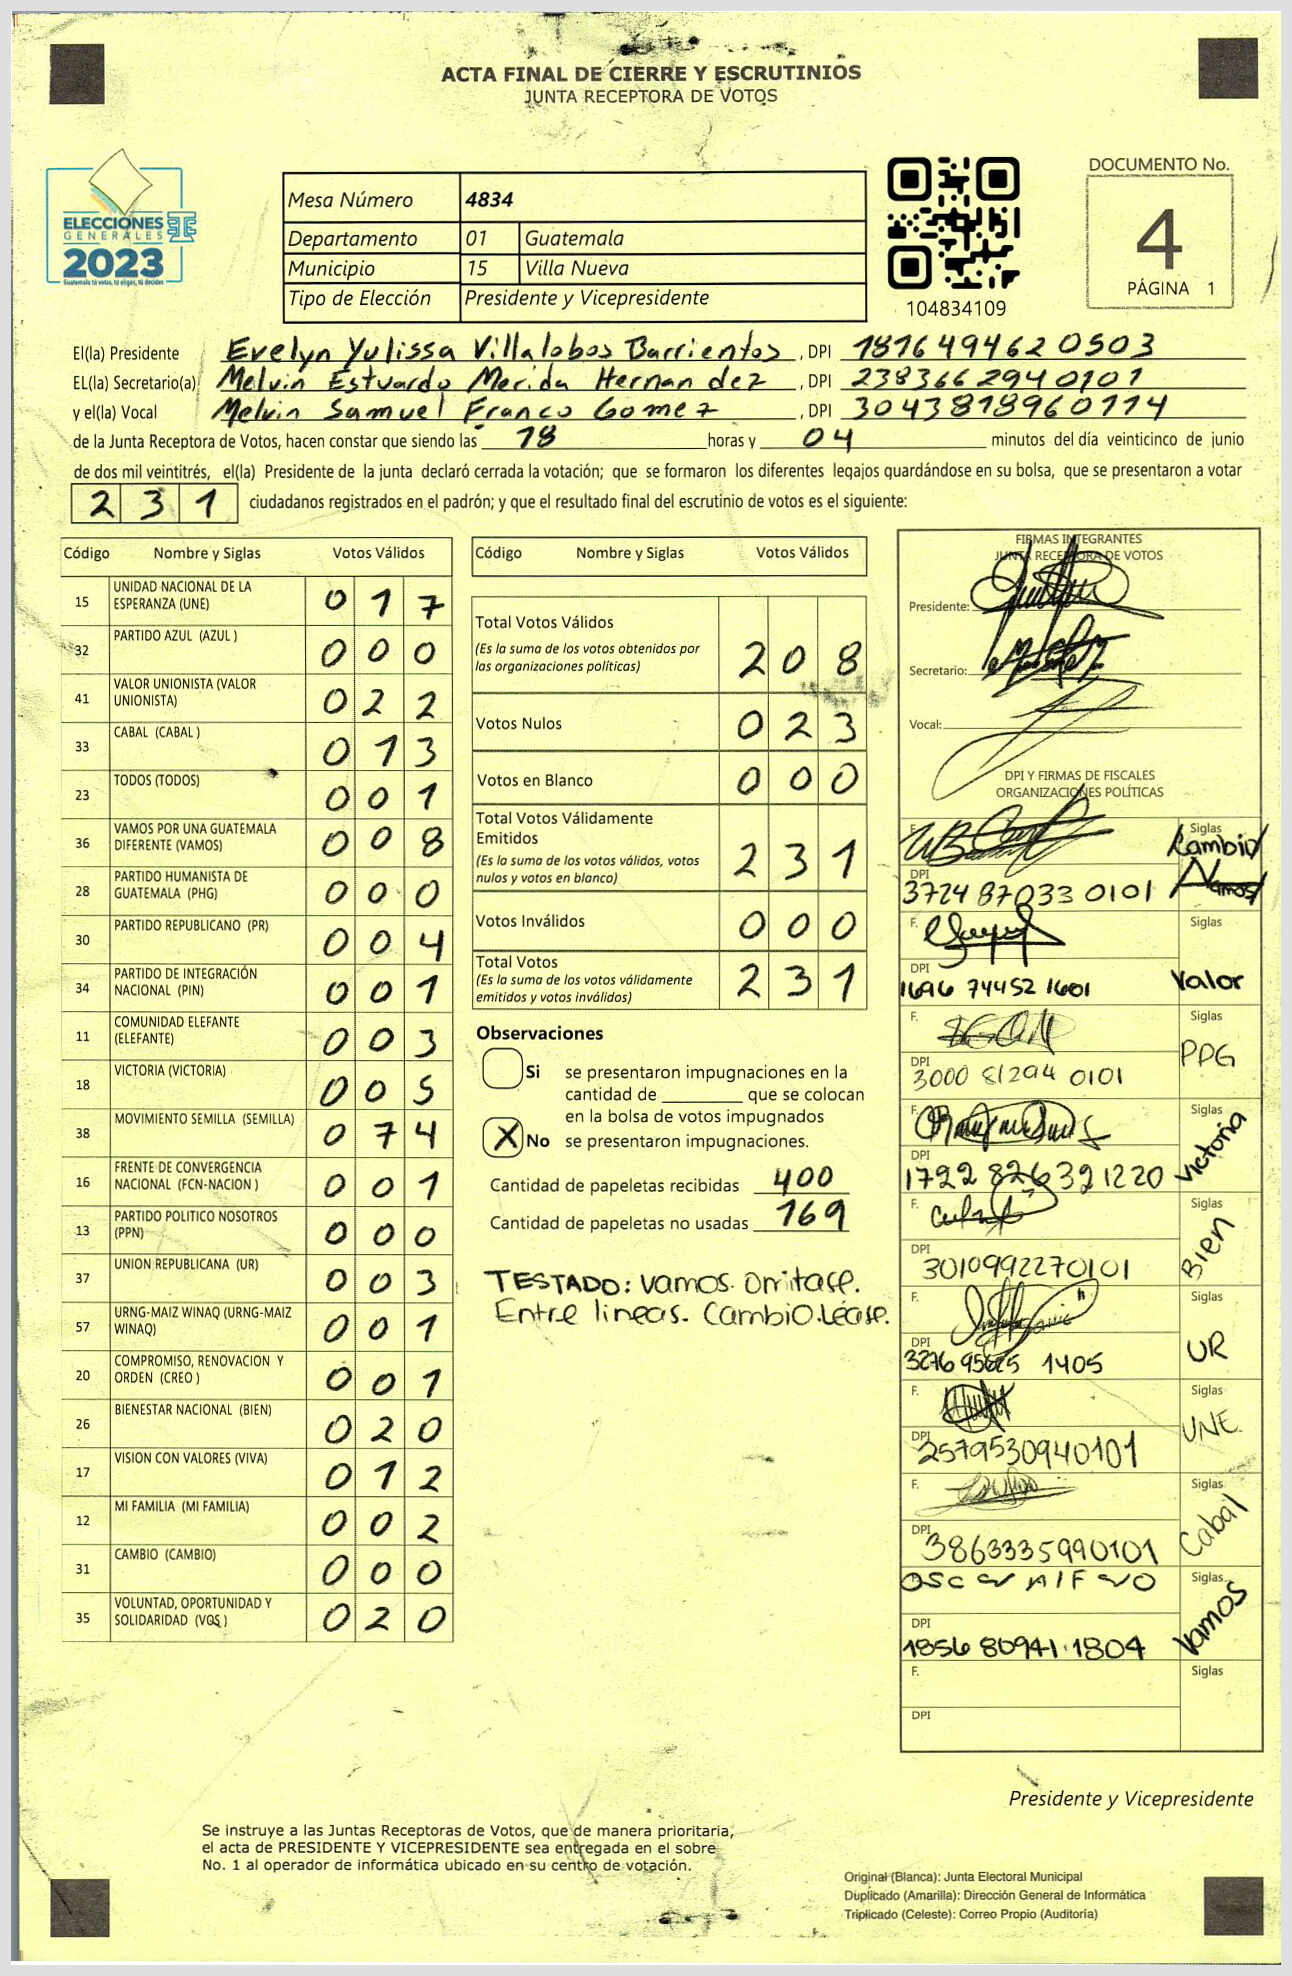 ACTA FINAL DE CIERRE Y ESCRUTINIOS
JUNTA RECEPTORA DE VOTOS
ELECCIONES
GENERALES
2023
Guatemala tú votas, tú eliges, tú decides
Mesa Número 4834
Departamento 01 Guatemala
Municipio 15 Villa Nueva
Tipo de Elección Presidente y Vicepresidente
104834109
DOCUMENTO No.
4
PÁGINA 1
El(la) Presidente Evelyn Yulissa Villalobos Barrientos, DPI 1876494620503
EL(la) Secretario(a) Melvin Estuardo Merida Hernandez, DPI 2383662940101
y el(la) Vocal Melvin Samuel Franco Gomez, DPI 3043818960114
de la Junta Receptora de Votos, hacen constar que siendo las 18 horas y 04 minutos del día veinticinco de junio
de dos mil veintitrés, el(la) Presidente de la junta declaró cerrada la votación; que se formaron los diferentes legajos guardándose en su bolsa, que se presentaron a votar
231 ciudadanos registrados en el padrón; y que el resultado final del escrutinio de votos es el siguiente:
Código Nombre y Siglas Votos Válidos
15 UNIDAD NACIONAL DE LA ESPERANZA (UNE) 017
32 PARTIDO AZUL (AZUL ) 000
41 VALOR UNIONISTA (VALOR UNIONISTA) 022
33 CABAL (CABAL ) 013
23 TODOS (TODOS) 001
36 VAMOS POR UNA GUATEMALA DIFERENTE (VAMOS) 008
28 PARTIDO HUMANISTA DE GUATEMALA (PHG) 000
30 PARTIDO REPUBLICANO (PR) 004
34 PARTIDO DE INTEGRACIÓN NACIONAL (PIN) 001
11 COMUNIDAD ELEFANTE (ELEFANTE) 003
18 VICTORIA (VICTORIA) 005
38 MOVIMIENTO SEMILLA (SEMILLA) 074
16 FRENTE DE CONVERGENCIA NACIONAL (FCN-NACION ) 001
13 PARTIDO POLITICO NOSOTROS (PPN) 000
37 UNION REPUBLICANA (UR) 003
57 URNG-MAIZ WINAQ (URNG-MAIZ WINAQ) 001
20 COMPROMISO, RENOVACION Y ORDEN (CREO ) 001
26 BIENESTAR NACIONAL (BIEN) 020
17 VISION CON VALORES (VIVA) 012
12 MI FAMILIA (MI FAMILIA) 002
31 CAMBIO (CAMBIO) 000
35 VOLUNTAD, OPORTUNIDAD Y SOLIDARIDAD (VOS ) 020
Código Nombre y Siglas Votos Válidos
Total Votos Válidos 208
(Es la suma de los votos obtenidos por
las organizaciones políticas)
Votos Nulos 023
Votos en Blanco 000
Total Votos Válidamente
Emitidos 231
(Es la suma de los votos válidos, votos
nulos y votos en blanco)
Votos Inválidos 000
Total Votos 231
(Es la suma de los votos válidamente
emitidos y votos inválidos)
Observaciones
Si se presentaron impugnaciones en la
cantidad de ________ que se colocan
en la bolsa de votos impugnados
X No se presentaron impugnaciones.
Cantidad de papeletas recibidas 400
Cantidad de papeletas no usadas 169
TESTADO: vamos. omitase.
Entre lineas. Cambio.Léase.
FIRMAS INTEGRANTES
JUNTA RECEPTORA DE VOTOS
Presidente:
Secretario:
Vocal:
DPI Y FIRMAS DE FISCALES
ORGANIZACIONES POLÍTICAS
F. Siglas Cambio
DPI 3724 87033 0101 Vamos
F. Siglas
DPI 1696 74452 1601 Valor
F. Siglas
DPI 3000 81294 0101 PPG
F. Siglas
DPI 1792 82632 1220 Victoria
F. Siglas
DPI 3010992270101 Bien
F. Siglas
DPI 3276 95625 1405 UR
F. Siglas
DPI 2579530940101 UNE
F. Siglas
DPI 3863335990101 Cabal
F. Siglas
DPI 1856 80941 1804 Vamos
F. Siglas
DPI
Presidente y Vicepresidente
Se instruye a las Juntas Receptoras de Votos, que de manera prioritaria,
el acta de PRESIDENTE Y VICEPRESIDENTE sea entregada en el sobre
No. 1 al operador de informática ubicado en su centro de votación.
Original (Blanca): Junta Electoral Municipal
Duplicado (Amarilla): Dirección General de Informática
Triplicado (Celeste): Correo Propio (Auditoría)